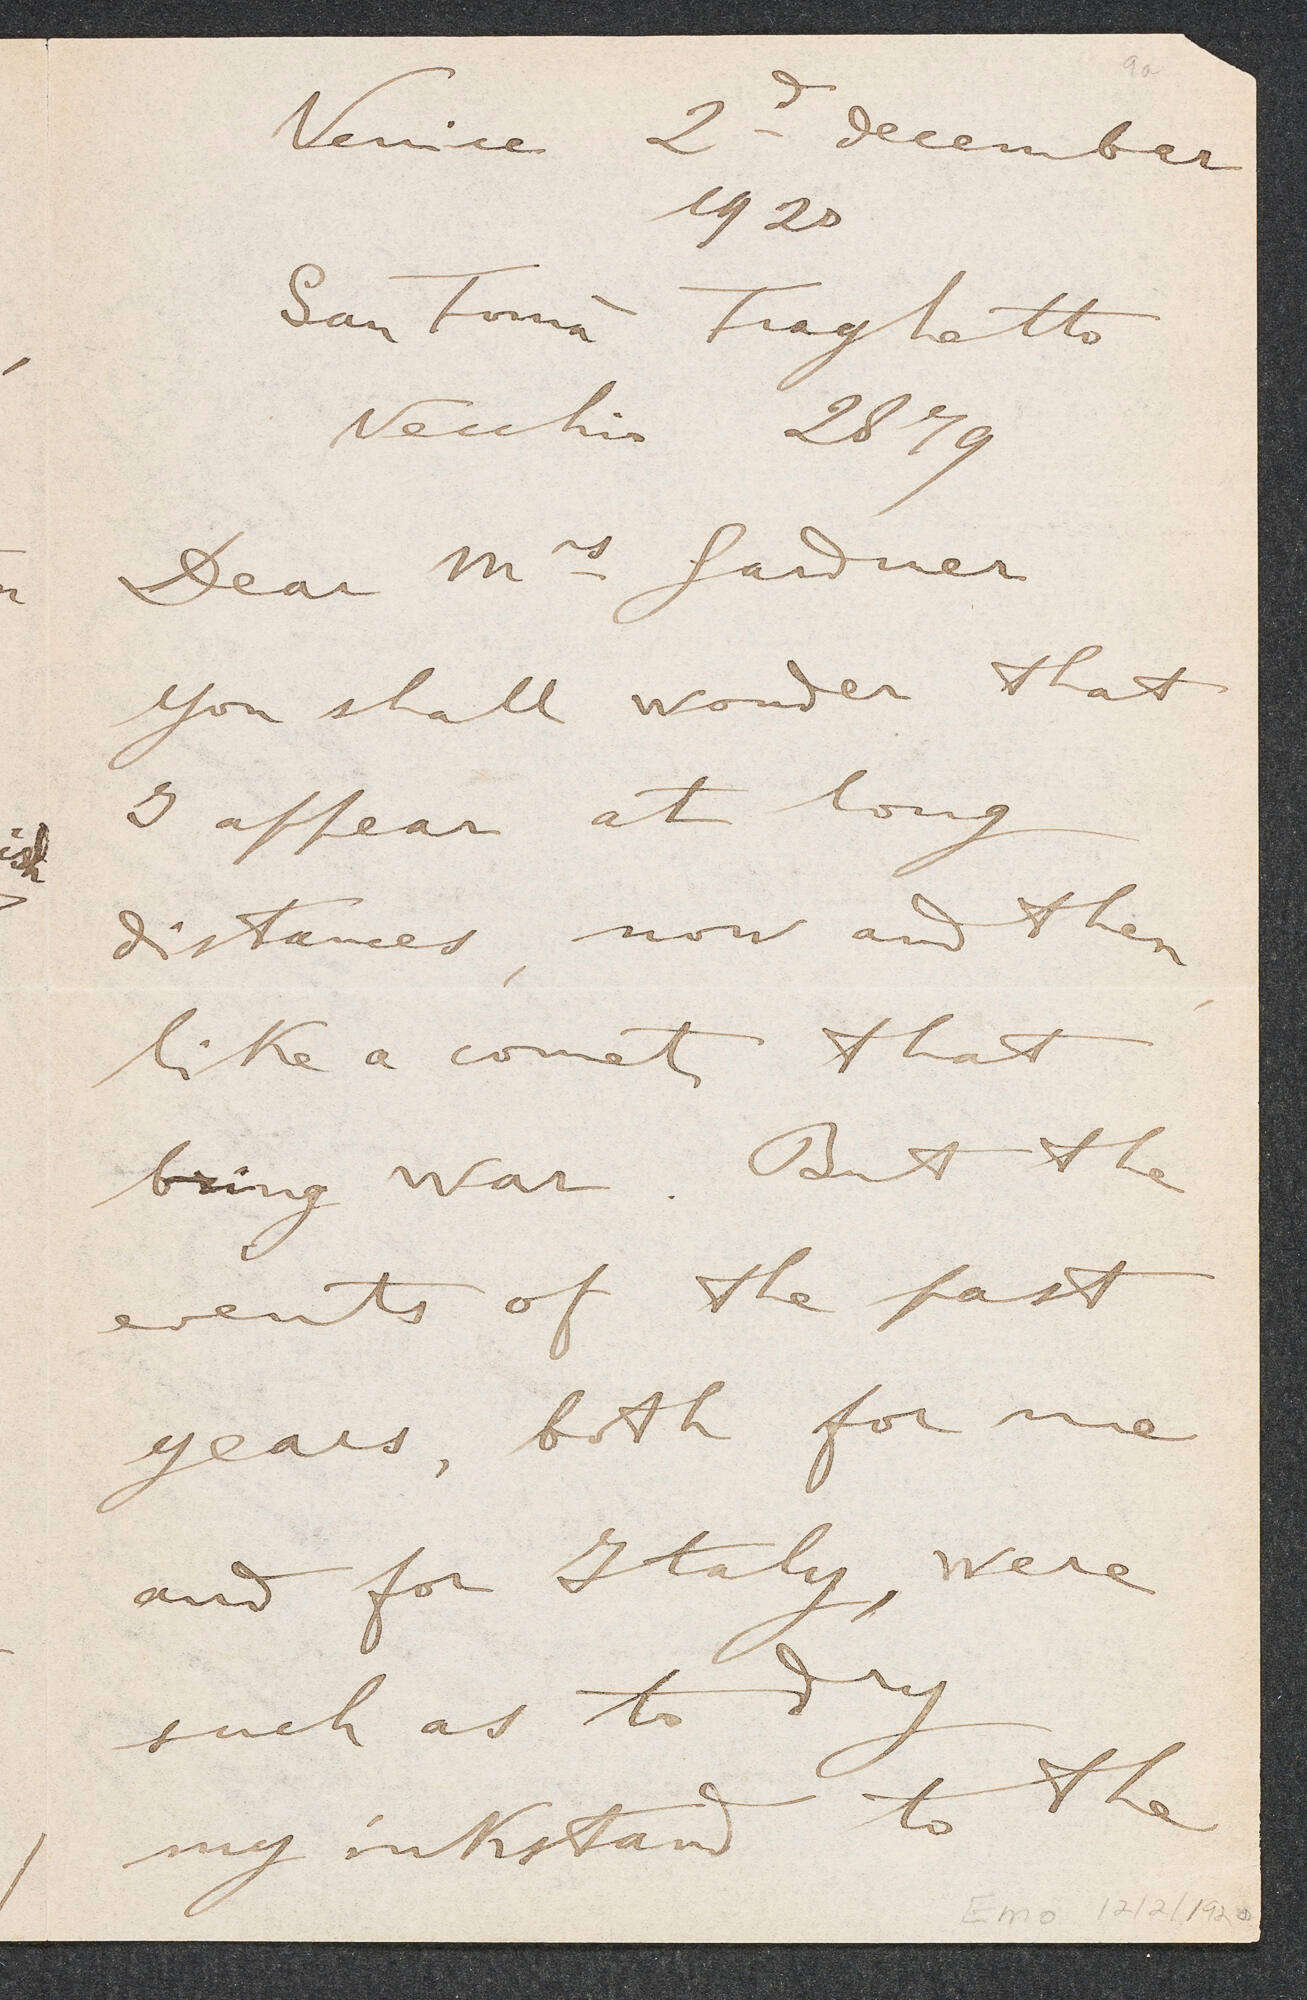 9a
Venice 2d december
1920
San Tomà Traghetto
Vecchio 2879
Dear Mrs Gardner
you shall wonder that
I appear at long
distances, now and then,
like a comet that
bring war. But the
events of the past
years, both for me
and for Italy, were
such as to dry
my inkstand to the
Emo 12/2/1920
ish